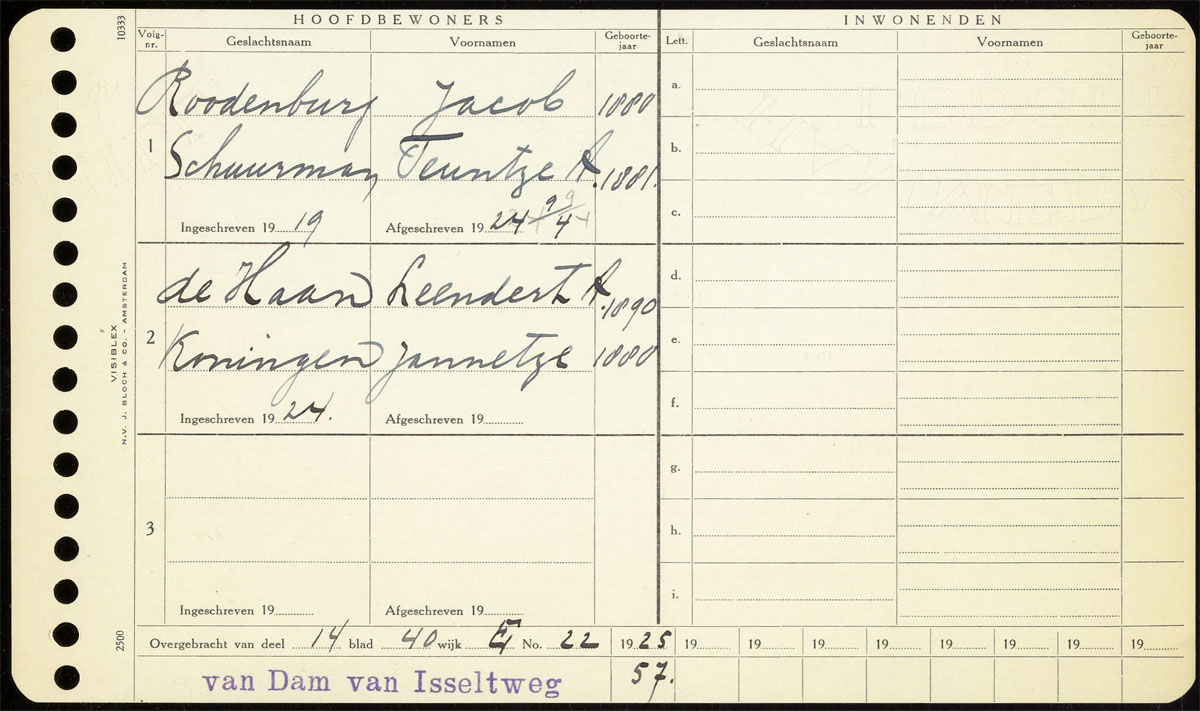 HOOFDBEWONERS
INWONENDEN
10333
Volg-nr. Geslachtsnaam Voornamen Geboorte-jaar
Lett. Geslachtsnaam Voornamen Geboorte-jaar
1
Roodenburg Jacob 1880
Schuurman Teuntze A. 1881.
Ingeschreven 19 19 Afgeschreven 19 24 9/4
2
de Haan Leendert A. 1890
Koningen Jannetze 1880
Ingeschreven 19 24. Afgeschreven 19
3
Ingeschreven 19 Afgeschreven 19
a.
b.
c.
d.
e.
f.
g.
h.
i.
VISIBLEX
N.V. J. BLOCH & CO. - AMSTERDAM
2500
Overgebracht van deel 14 blad 40 wijk E No. 22 19 25 19 19 19 19 19 19 19 19
van Dam van Isseltweg 57.